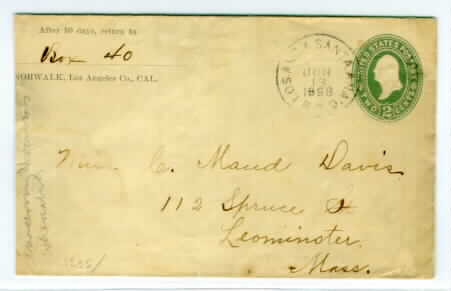 After 10 days, return to
Box 40
NORWALK, Los Angeles Co., CAL.
LOS A & SANTA ANA
JUN
13
1898
UNITED STATES POSTAGE
TWO 2 CENTS
C. Maud Davis
112 Spruce St
Leominster
Mass.